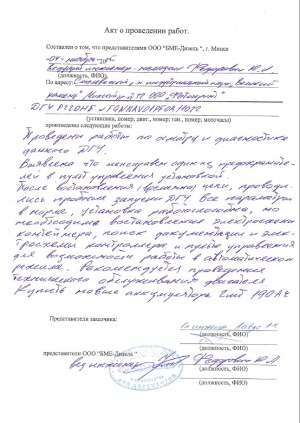 Акт о проведении работ.
Составлен о том, что представителями ООО "БМЕ-Дизель", г. Минск
04 ноября
Ведущий инженер-наладчик Федорович Ю.Л
(должность, ФИО)
По адресу: Смолевичский р-н индустриальный парк, Великий
камень
ДГУ
(установка, номер, двиг, номер, ген, номер, моточасы)
произведены следующие работы:
Проведены работы по осмотру и диагностике
данного ДГУ.
Выявлено что неисправен один из предохраните-
лей в пульте управления установкой.
После востановления (временно) цепи, проводи-
лись пробные запуски ДГУ. Все параметры
в норме, установка работоспособна, но
необходимо востановление электросхемы
контейнера, поиск документации и элек-
тросхемы контроллера и пульта управления
для возможности работы в автоматическом
режиме. Рекомендуется проведение
технического обслуживания двигателя
Купить новые аккумулятора 2шт 190 Ач
Представители заказчика:
(должность, ФИО)
(должность, ФИО)
представители ООО "БМЕ-Дизель"
вед инженер Федорович Ю Л
(должность, ФИО)
(должность, ФИО)